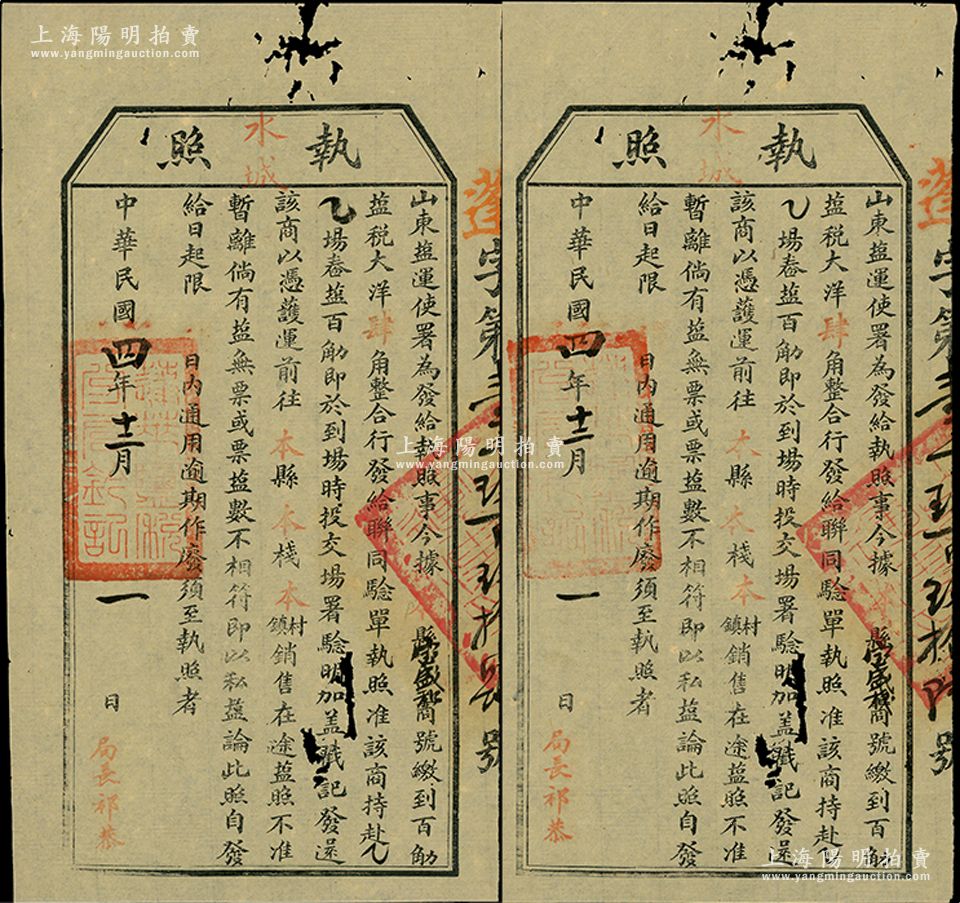 上海陽明拍賣
www.yangmingauction.com
執照
水城
山東盐運使署為發給執照事今據 縣 商號繳到百觔
盐税大洋肆角整合行發給聯同驗單執照准該商持赴乙
乙場春盐百觔即於到場時投交場署驗明加盖戳記發還
該商以憑護運前往 本縣 本栈 本村鎮銷售在途盐照不准
暫離倘有盐無票或票盐數不相符即以私盐論此照自發
給日起限 日內通用逾期作廢須至執照者
中華民國四年十二月一日
局長祁恭
蓬字第 號
執照
水城
山東盐運使署為發給執照事今據 縣 商號繳到百觔
盐税大洋肆角整合行發給聯同驗單執照准該商持赴乙
乙場春盐百觔即於到場時投交場署驗明加盖戳記發還
該商以憑護運前往 本縣 本栈 本村鎮銷售在途盐照不准
暫離倘有盐無票或票盐數不相符即以私盐論此照自發
給日起限 日內通用逾期作廢須至執照者
中華民國四年十二月一日
局長祁恭
蓬字第 號
上海陽明拍賣
www.yangmingauction.com
上海陽明拍賣
www.yangmingauction.com